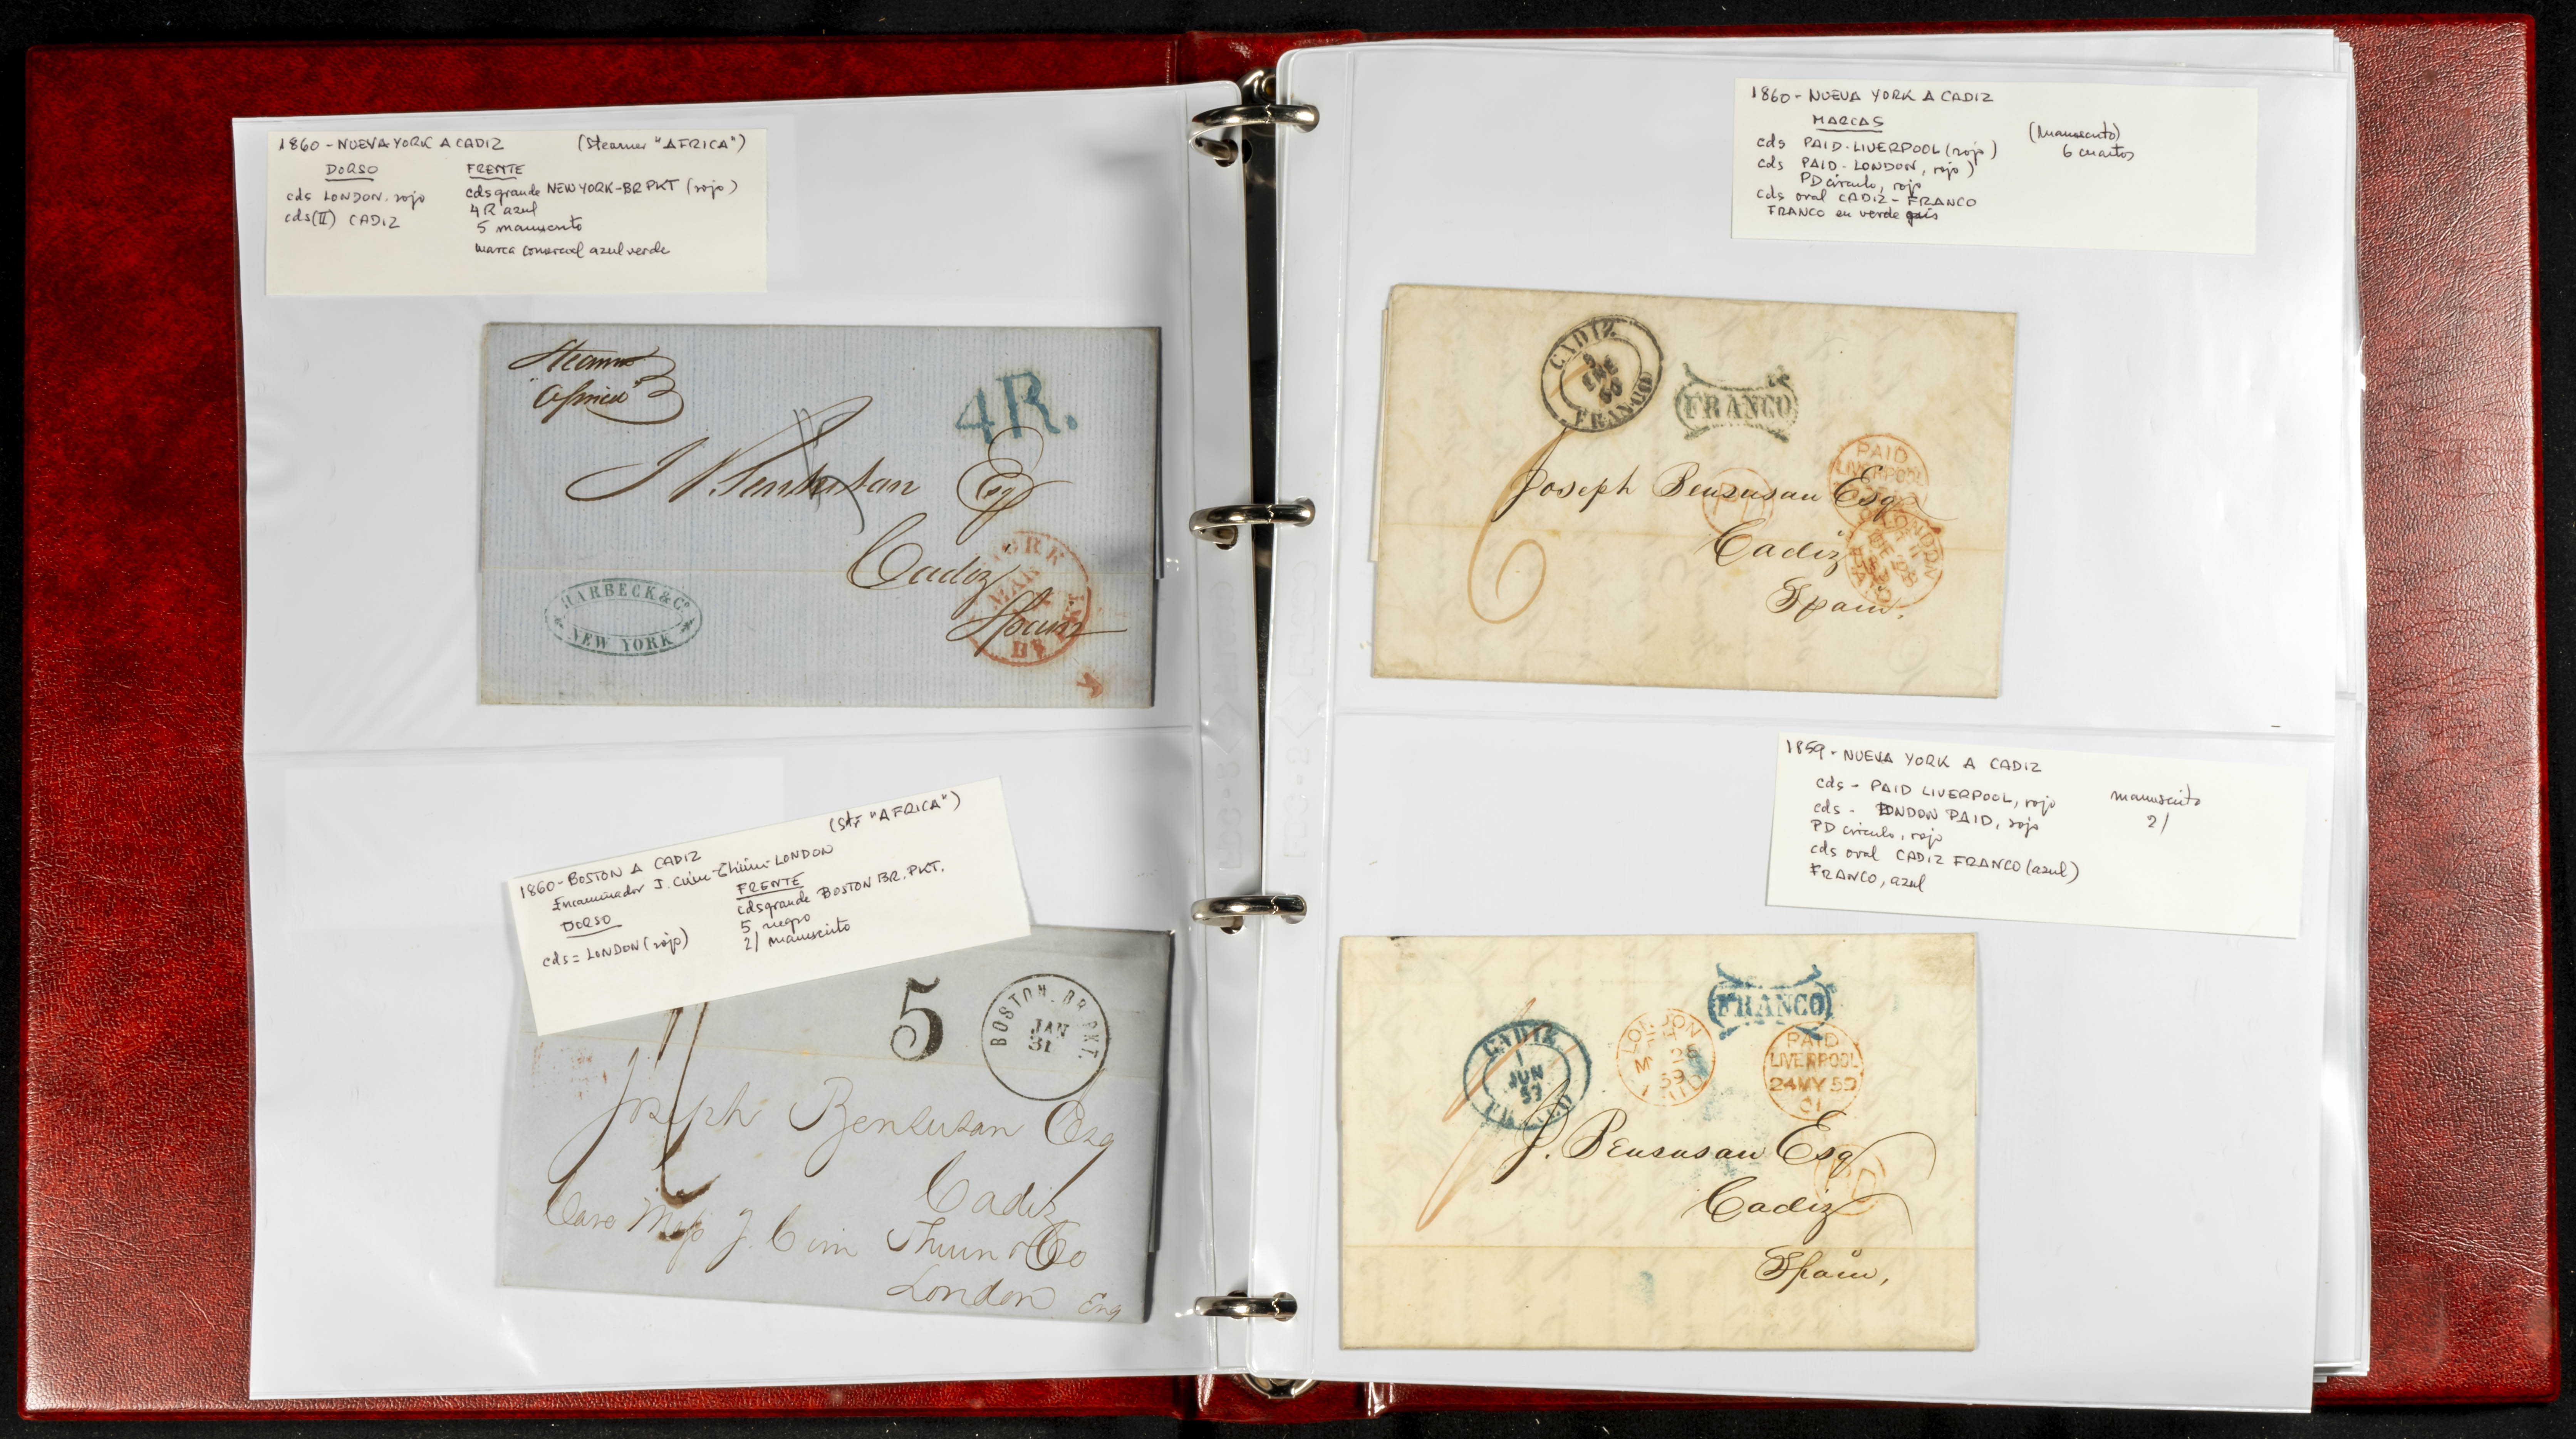 1860 - NUEVA YORK A CADIZ (Steamer "AFRICA")
DORSO FRENTE
cds LONDON. rojo cds grande NEW YORK-BR PKT (rojo)
cds (II) CADIZ 4R azul
5 manuscrito
marca comercial azul verde
Steamer
"Africa"
4R.
J Bensusan Esq
Cadiz
Spain
YORK
MAR
BR PKT
HARBECK & Co.
NEW YORK
(Str "AFRICA")
1860 - BOSTON A CADIZ
Encaminador J. LONDON
DORSO FRENTE
cds grande BOSTON BR. PKT.
5, negro
cds = LONDON (rojo) 2/ manuscrito
5
BOSTON. BR. PKT.
JAN
31
Joseph Bensusan Esq
Cadiz
Care Mess J. Thuun & Co
London Eng
1860 - NUEVA YORK A CADIZ
MARCAS
(Manuscrito)
cds PAID. LIVERPOOL (rojo) 6 cuartos
cds PAID. LONDON, rojo)
PD circulo, rojo
cds oval CADIZ - FRANCO
FRANCO en verde gris
CADIZ
9
ENE
60
FRANCO
FRANCO
PAID
LIVERPOOL
6
Joseph Bensusan Esq
PD
LONDON
PAID
Cadiz
Spain.
1859 - NUEVA YORK A CADIZ
cds - PAID LIVERPOOL, rojo manuscrito
cds - LONDON PAID, rojo 2/
PD circulo, rojo
cds oval CADIZ FRANCO (azul)
FRANCO, azul
FRANCO
CADIZ
1
JUN
59
FRANCO
LONDON
59
PAID
LIVERPOOL
24 MY 59
J. Bensusan Esq
PD
Cadiz
Spain,